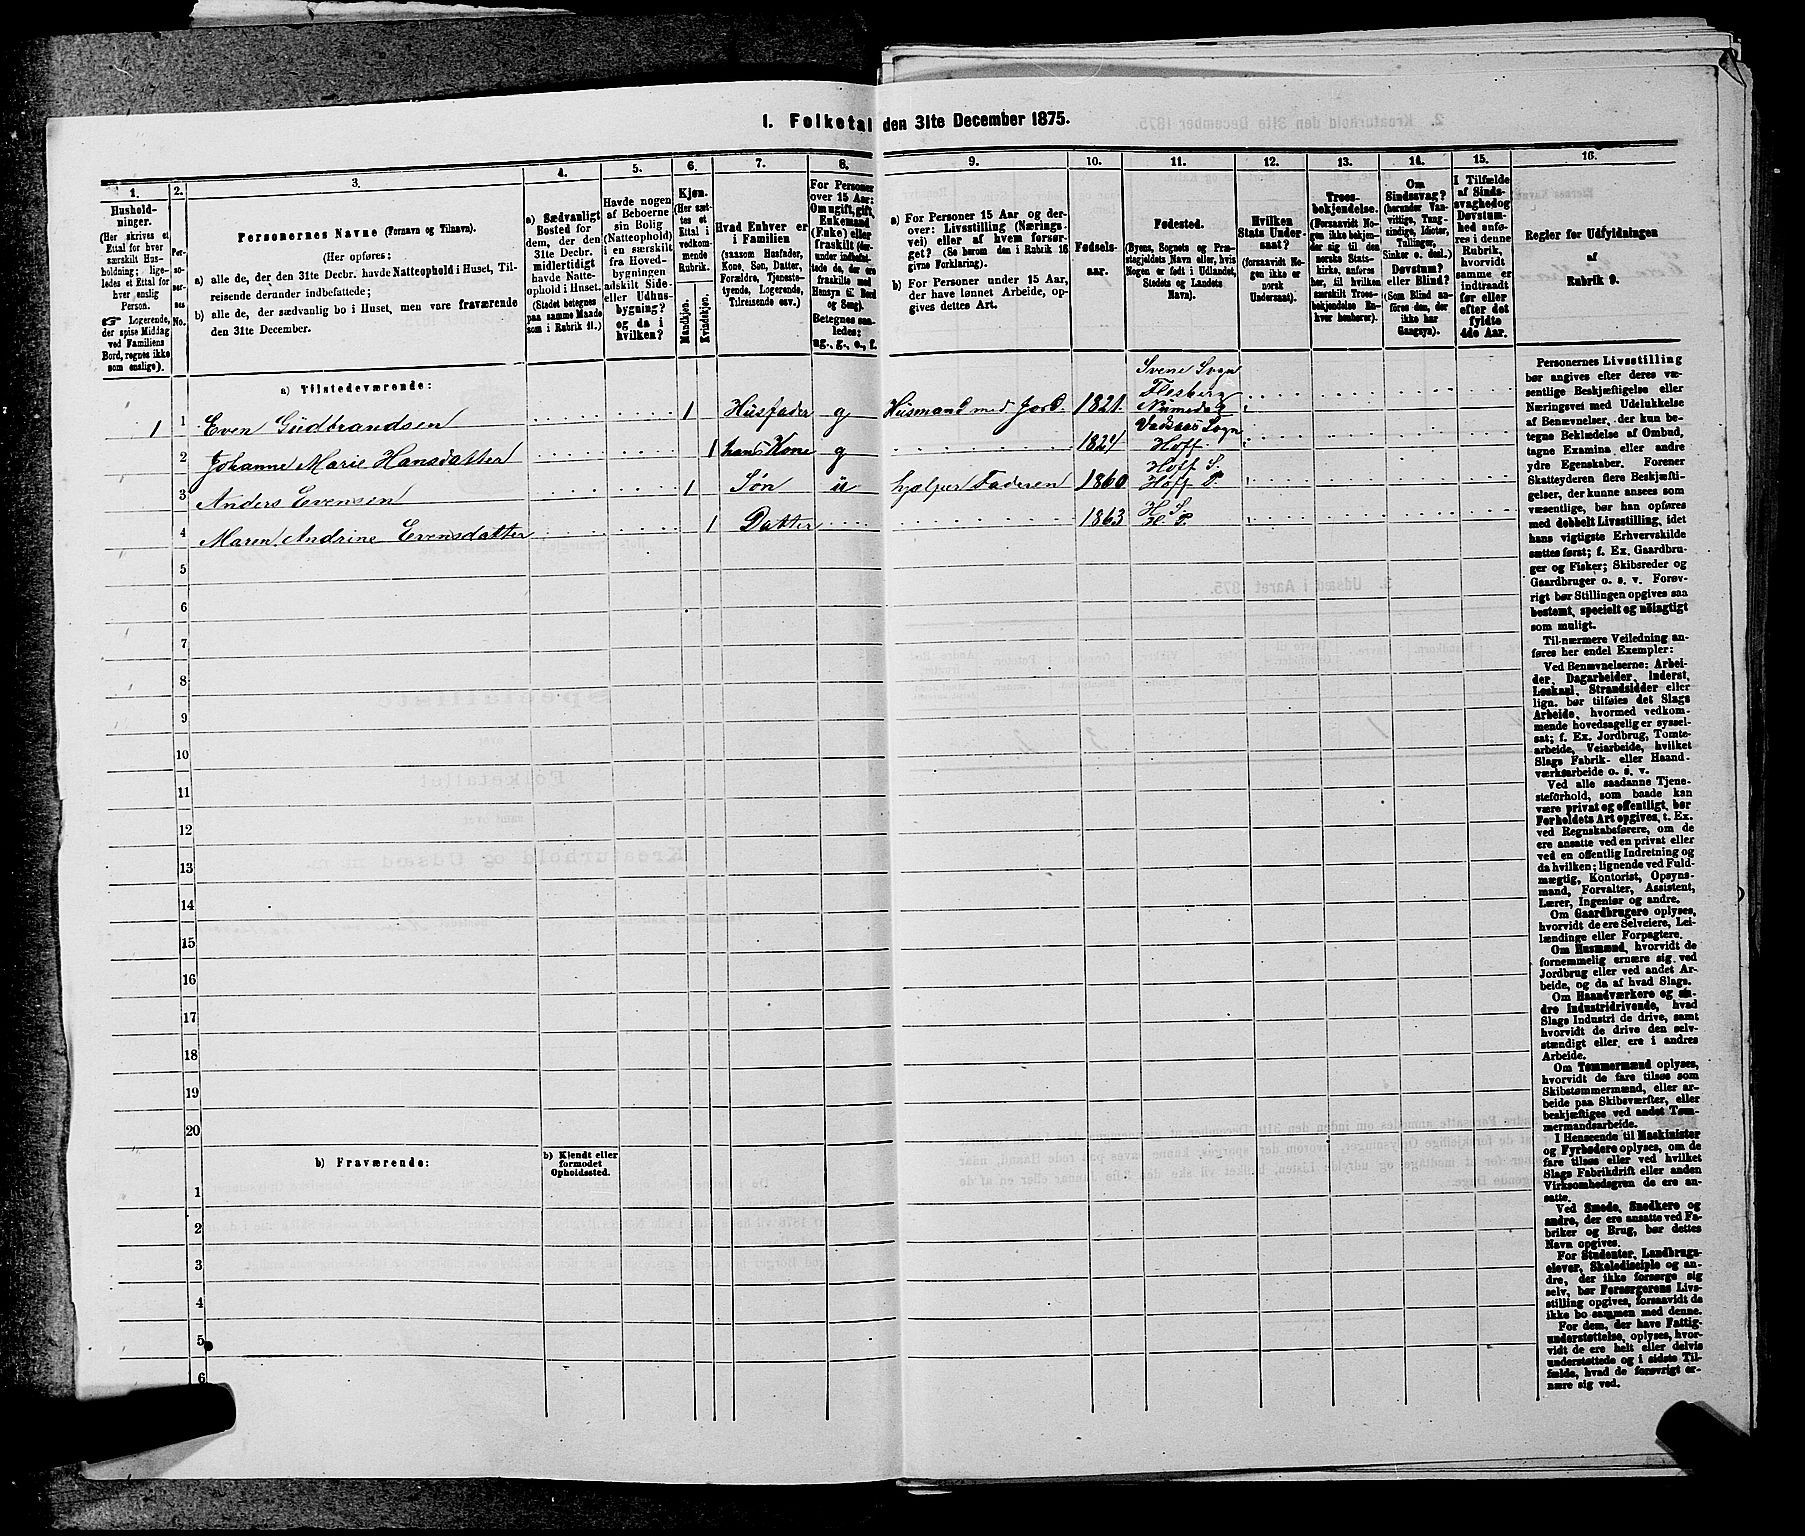 1. Folketal den 31te December 1875.
1.
Hushold-
ninger.
(Her skrives et
Ettal for hver
særskilt Hus-
holdning; lige-
ledes et Ettal for
hver enslig
Person.
Logerende,
der spise Middag
ved Familiens
Bord, regnes ikke
som enslige).
2.
Per-
so-
ner-
nes
No.
3.
Personernes Navne (Fornavn og Tilnavn).
(Her opføres:
a) alle de, der den 31te Decbr. havde Natteophold i Huset, Til-
reisende derunder indbefattede;
b) alle de, der sædvanlig bo i Huset, men vare fraværende
den 31te December.
4.
a) Sædvanligt
Bosted for
dem, der den
31te Decbr.
midlertidigt
havde Natte-
ophold i Huset.
(Stedet betegnes
paa samme Maade
som i Rubrik 11.)
5.
Havde nogen
af Beboerne
sin Bolig
(Natteophold)
i en særskilt
fra Hoved-
bygningen
adskilt Side-
eller Udhus-
bygning?
og da i
hvilken?
6.
Kjøn.
(Her sæt-
tes et
Ettal i
vedkom-
mende
Rubrik.
Mandkjøn.
Kvindekjøn.
7.
Hvad Enhver er
i Familien
(saasom Husfader,
Kone, Søn, Datter,
Forældre, Tjeneste-
tyende, Logerende,
Tilreisende osv.)
8.
For Personer
over 15 Aar:
Om ugift, gift,
Enkemand
(Enke) eller
fraskilt (der-
under indbefat-
tede de, der ere
fraskilte med
Hensyn til Bord
og Seng).
Betegnes saa-
ledes:
ug., g., e., f.
9.
a) For Personer 15 Aar og der-
over: Livsstilling (Nærings-
vei) eller af hvem forsør-
get? (Se herom den i Rubrik 16
givne Forklaring).
b) For Personer under 15 Aar,
der have lønnet Arbeide, op-
gives dettes Art.
10.
Fødsels-
aar.
11.
Fødested.
(Byens, Sognets og Præ-
stegjeldets Navn eller, hvis
Nogen er født i Udlandet,
Stedets og Landets
Navn).
12.
Hvilken
Stats Under-
saat?
(forsaavidt No-
gen ikke er
norsk
Undersaat).
13.
Troes-
bekjendelse.
(Forsaavidt No-
gen ikke bekjen-
der sig til den
norske Stats-
kirke, anføres
her, til hvilken
særskilt Troes-
bekjendelse En-
hver henhører).
14.
Om
Sindssvag?
(herunder Van-
vittige, Tung-
sindige, Idioter,
Tullinger,
Sinker o. desl.)
Døvstum?
eller Blind?
(Som Blind an-
føres den, der
ikke har
Gangsyn).
15.
I Tilfælde
af Sinds-
svaghed og
Døvstum-
hed anfø-
res i denne
Rubrik,
hvorvidt
samme er
indtraadt
før eller
efter det
fyldte
4de Aar.
16.
Regler for Udfyldningen
af
Rubrik 9.
a) Tilstedeværende:
1 1 Even Gudbrandsen 1 Husfader g Husmand med Jord. 1821. Svene Sogn Flesberg Numedal
2 Johanne Marie Hansdatter 1 hans Kone g 1824 Vadaas Sogn Hoff.
3 Anders Evensen 1 Søn u hjælper Faderen 1860 Hoff S. Hoff P.
4 Maren Andrine Evensdatter 1 Datter 1863 H S. H P.
5
6
7
8
9
10
11
12
13
14
15
16
17
18
19
20
b) Fraværende:
b) Kjendt eller
formodet
Opholdssted.
1
2
3
4
5
6
Personernes Livsstilling
bør angives efter deres væ-
sentlige Beskjæftigelse eller
Næringsvei med Udelukkelse
af Benævnelser, der kun be-
tegne Beklædelse af Ombud,
tagne Examina eller andre
ydre Egenskaber. Forener
Skatteyderen flere Beskjæfti-
gelser, der kunne ansees som
væsentlige, bør han opføres
med dobbelt Livsstilling, idet
hans vigtigste Erhvervskilde
sættes først; f. Ex. Gaardbru-
ger og Fisker; Skibsreder og
Gaardbruger o. s. v. Forøv-
rigt bør Stillingen opgives saa
bestemt, specielt og nøiagtigt
som muligt.
Til nærmere Veiledning an-
føres her endel Exempler:
Ved Benævnelserne: Arbei-
der, Dagarbeider, Inderst,
Løskarl, Strandsidder eller
lign. bør tilføies det Slags
Arbeide, hvormed vedkom-
mende hovedsagelig er syssel-
sat; f. Ex. Jordbrug, Tomte-
arbeide, Veiarbeide, hvilket
Slags Fabrik- eller Haand-
værksarbeide o. s. v.
Ved alle saadanne Tjene-
steforhold, som baade kan
være privat og offentligt, bør
Forholdets Art opgives, t. Ex.
ved Regnskabsførere, om de
ere ansatte ved en privat eller
ved en offentlig Indretning og
da hvilken; lignende ved Fuld-
mægtig, Kontorist, Opsyns-
mand, Forvalter, Assistent,
Lærer, Ingeniør og andre.
Om Gaardbrugere oplyses,
hvorvidt de ere Selveiere, Lei-
lændinge eller Forpagtere.
Om Husmænd, hvorvidt de
fornemmelig ernære sig ved
Jordbrug eller ved andet Ar-
beide, og da af hvad Slags.
Om Haandværkere og an-
dre Industridrivende, hvad
Slags Industri de drive, samt
hvorvidt de drive den selv-
stændigt eller ere i andres
Arbeide.
Om Tømmermænd oplyses,
hvorvidt de fare tilsøs som
Skibstømmermænd, eller ar-
beide paa Skibsværfter, eller
beskjæftiges ved andet Tøm-
mermandsarbeide.
I Henseende til Maskinister
og Fyrbødere oplyses, om de
fare tilsøs eller ved hvilket
Slags Fabrikdrift eller anden
Virksomhedsgren de ere an-
satte.
Ved Smede, Snedkere og
andre, der ere ansatte ved Fa-
briker og Brug, bør dettes
Navn opgives.
For Studenter, Landbrugs-
elever, Skoledisciple og an-
dre, der ikke forsørge sig
selv, bør Forsørgerens Livs-
stilling opgives, forsaavidt de
ikke bo sammen med denne.
For dem, der have Fattig-
understøttelse, oplyses, hvor-
vidt de ere helt eller delvis
understøttede og i sidste Til-
fælde, hvad de forøvrigt er-
nære sig ved.